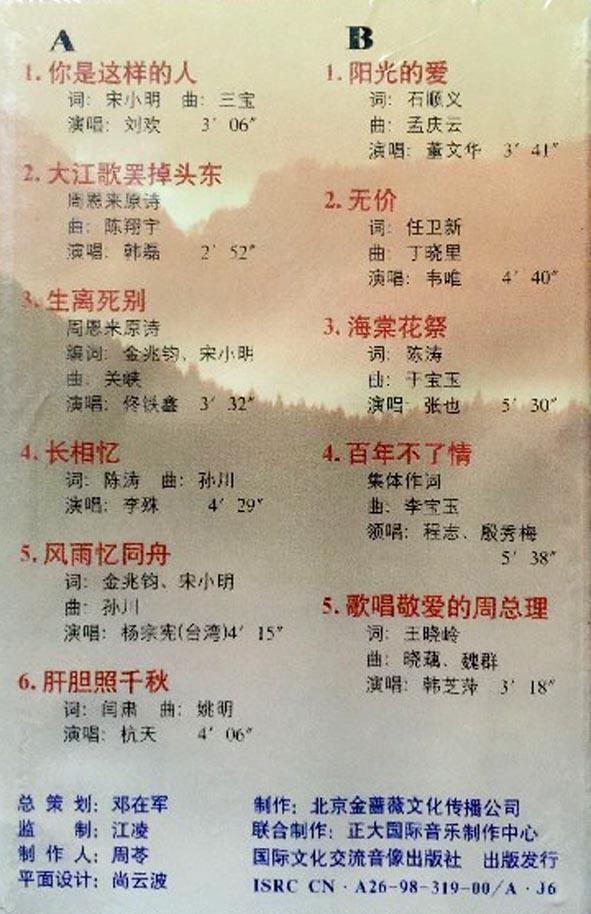 A
1. 你是这样的人
词: 宋小明 曲: 三宝
演唱: 刘欢 3′ 06″
2. 大江歌罢掉头东
周恩来原诗
曲: 陈翔宇
演唱: 韩磊 2′ 52″
3. 生离死别
周恩来原诗
编词: 金兆钧、宋小明
曲: 关峡
演唱: 佟铁鑫 3′ 32″
4. 长相忆
词: 陈涛 曲: 孙川
演唱: 李殊 4′ 29″
5. 风雨忆同舟
词: 金兆钧、宋小明
曲: 孙川
演唱: 杨宗宪(台湾)4′ 15″
6. 肝胆照千秋
词: 闫肃 曲: 姚明
演唱: 杭天 4′ 06″
B
1. 阳光的爱
词: 石顺义
曲: 孟庆云
演唱: 董文华 3′ 41″
2. 无价
词: 任卫新
曲: 丁晓里
演唱: 韦唯 4′ 40″
3. 海棠花祭
词: 陈涛
曲: 于宝玉
演唱: 张也 5′ 30″
4. 百年不了情
集体作词
曲: 李宝玉
领唱: 程志、殷秀梅
5′ 38″
5. 歌唱敬爱的周总理
词: 王晓岭
曲: 晓藕、魏群
演唱: 韩芝萍 3′ 18″
总策划: 邓在军
监制: 江凌
制作人: 周苓
平面设计: 尚云波
制作: 北京金蔷薇文化传播公司
联合制作: 正大国际音乐制作中心
国际文化交流音像出版社 出版发行
ISRC CN · A26-98-319-00/A · J6